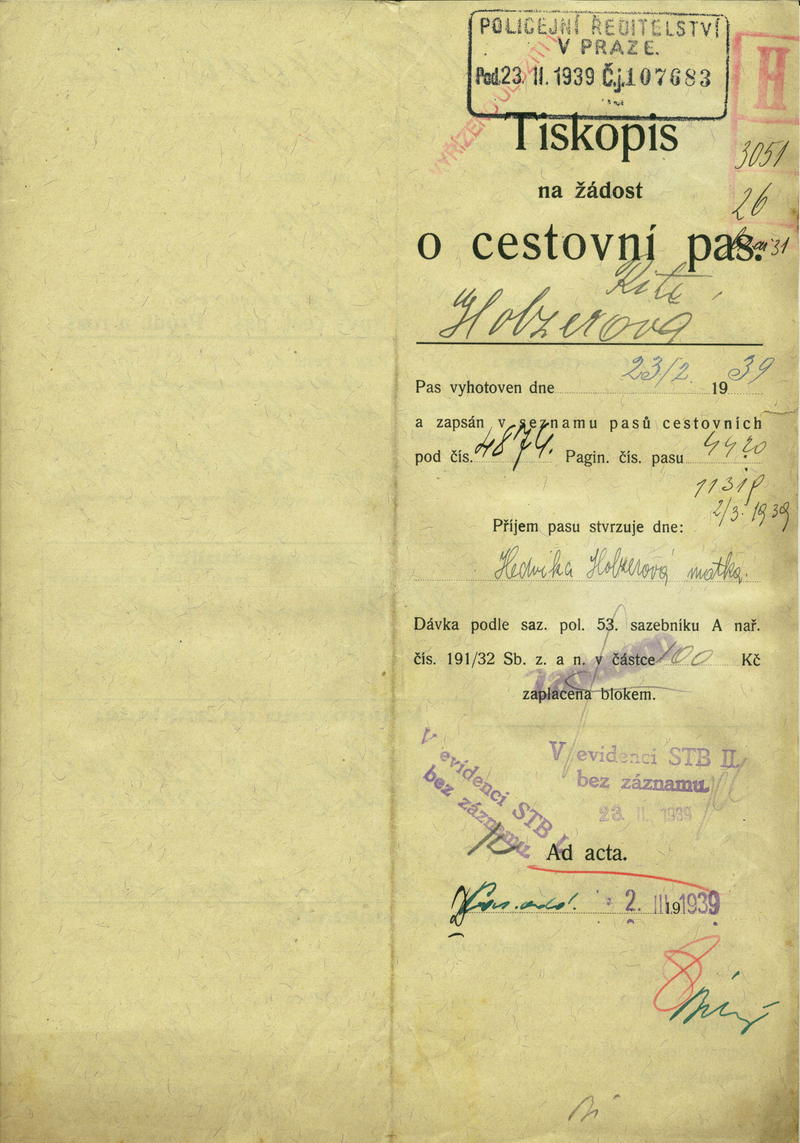 POLICEJNÍ ŘEDITELSTVÍ
V PRAZE.
Pod. 23. II. 1939 Č.j. 107683
H
VYŘÍZENO
Tiskopis
3051
na žádost
26
o cestovní pas.
31
Kitě
Holzerová
Pas vyhotoven dne 23/2 1939
a zapsán v seznamu pasů cestovních
pod čís. 4874. Pagin. čís. pasu 4420
2/3. 1939
Příjem pasu stvrzuje dne:
Hedvika Holzerová matka.
Dávka podle saz. pol. 53. sazebníku A nař.
čís. 191/32 Sb. z. a n. v částce 100 Kč
zaplacena blokem.
V evidenci STB II.
bez záznamu.
23. II. 1939
V evidenci STB I.
bez záznamu.
Ad acta.
2. III. 1939